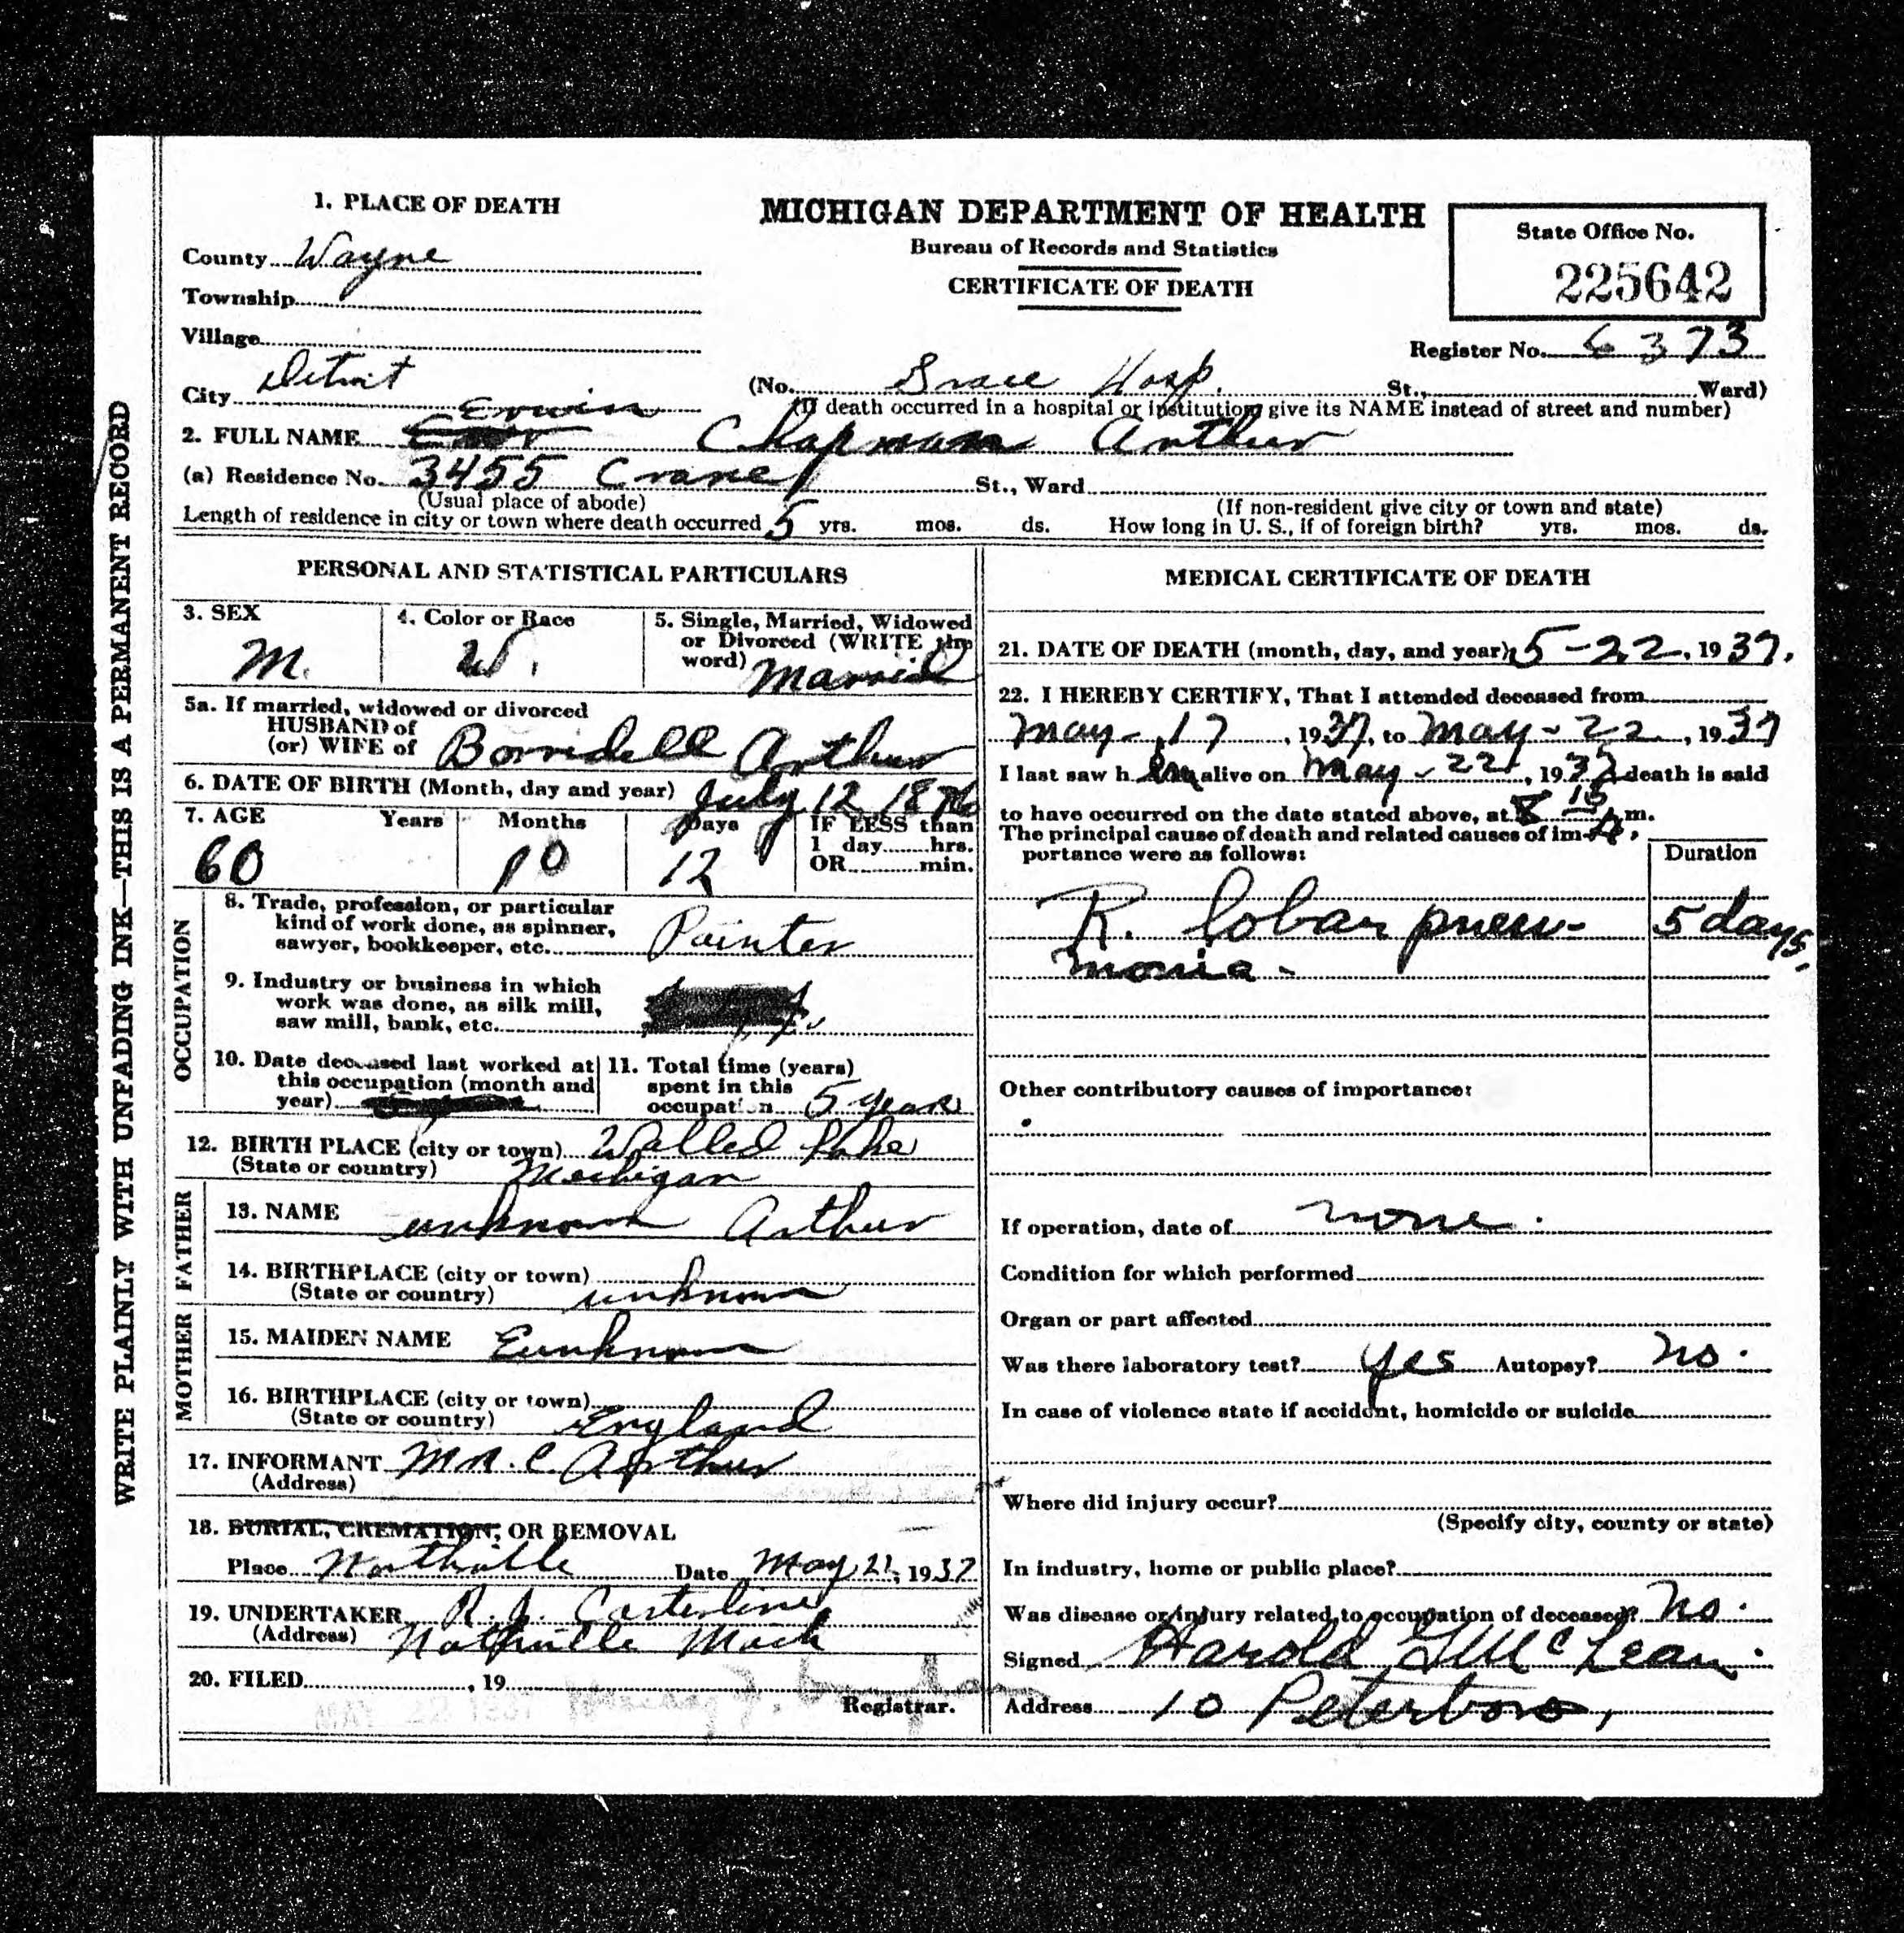 WRITE PLAINLY WITH UNFADING INK—THIS IS A PERMANENT RECORD
1. PLACE OF DEATH
County Wayne
Township
Village
City Detroit
MICHIGAN DEPARTMENT OF HEALTH
Bureau of Records and Statistics
CERTIFICATE OF DEATH
State Office No.
225642
Register No. 6373
(No. Grace Hosp. St., Ward)
(If death occurred in a hospital or institution, give its NAME instead of street and number)
Erwin
2. FULL NAME Chapman Arthur
(a) Residence No. 3455 Crane St., Ward
(Usual place of abode) (If non-resident give city or town and state)
Length of residence in city or town where death occurred 5 yrs. mos. ds. How long in U. S., if of foreign birth? yrs. mos. ds.
PERSONAL AND STATISTICAL PARTICULARS
3. SEX
M.
4. Color or Race
W.
5. Single, Married, Widowed
or Divorced (WRITE the
word) Married
5a. If married, widowed or divorced
HUSBAND of
(or) WIFE of Borridell Arthur
6. DATE OF BIRTH (Month, day and year) July 12 1876
7. AGE Years Months Days IF LESS than
1 day hrs.
OR min.
60 10 12
OCCUPATION
8. Trade, profession, or particular
kind of work done, as spinner,
sawyer, bookkeeper, etc. Painter
9. Industry or business in which
work was done, as silk mill,
saw mill, bank, etc.
10. Date deceased last worked at
this occupation (month and
year)
11. Total time (years)
spent in this
occupation 5 years
12. BIRTH PLACE (city or town) Walled Lake
(State or country) Michigan
FATHER
13. NAME unknown Arthur
14. BIRTHPLACE (city or town)
(State or country) unknown
MOTHER
15. MAIDEN NAME unknown
16. BIRTHPLACE (city or town)
(State or country) England
17. INFORMANT Mr. C. Arthur
(Address)
18. BURIAL, CREMATION, OR REMOVAL
Place Northville Date May 21, 1937
19. UNDERTAKER R. J. Casterline
(Address) Northville Mich
20. FILED , 19
Registrar.
MEDICAL CERTIFICATE OF DEATH
21. DATE OF DEATH (month, day, and year) 5-22, 1937.
22. I HEREBY CERTIFY, That I attended deceased from
May - 17, 1937, to May - 22, 1937
I last saw him alive on May - 22, 1937 death is said
to have occurred on the date stated above, at 8 15 A. m.
The principal cause of death and related causes of im-
portance were as follows:
Duration
R. lobar pneu- 5 days.
monia -
Other contributory causes of importance:
If operation, date of none.
Condition for which performed
Organ or part affected
Was there laboratory test? yes Autopsy? No.
In case of violence state if accident, homicide or suicide
Where did injury occur?
(Specify city, county or state)
In industry, home or public place?
Was disease or injury related to occupation of deceased? No.
Signed Harold McLean
Address 10 Peterboro,